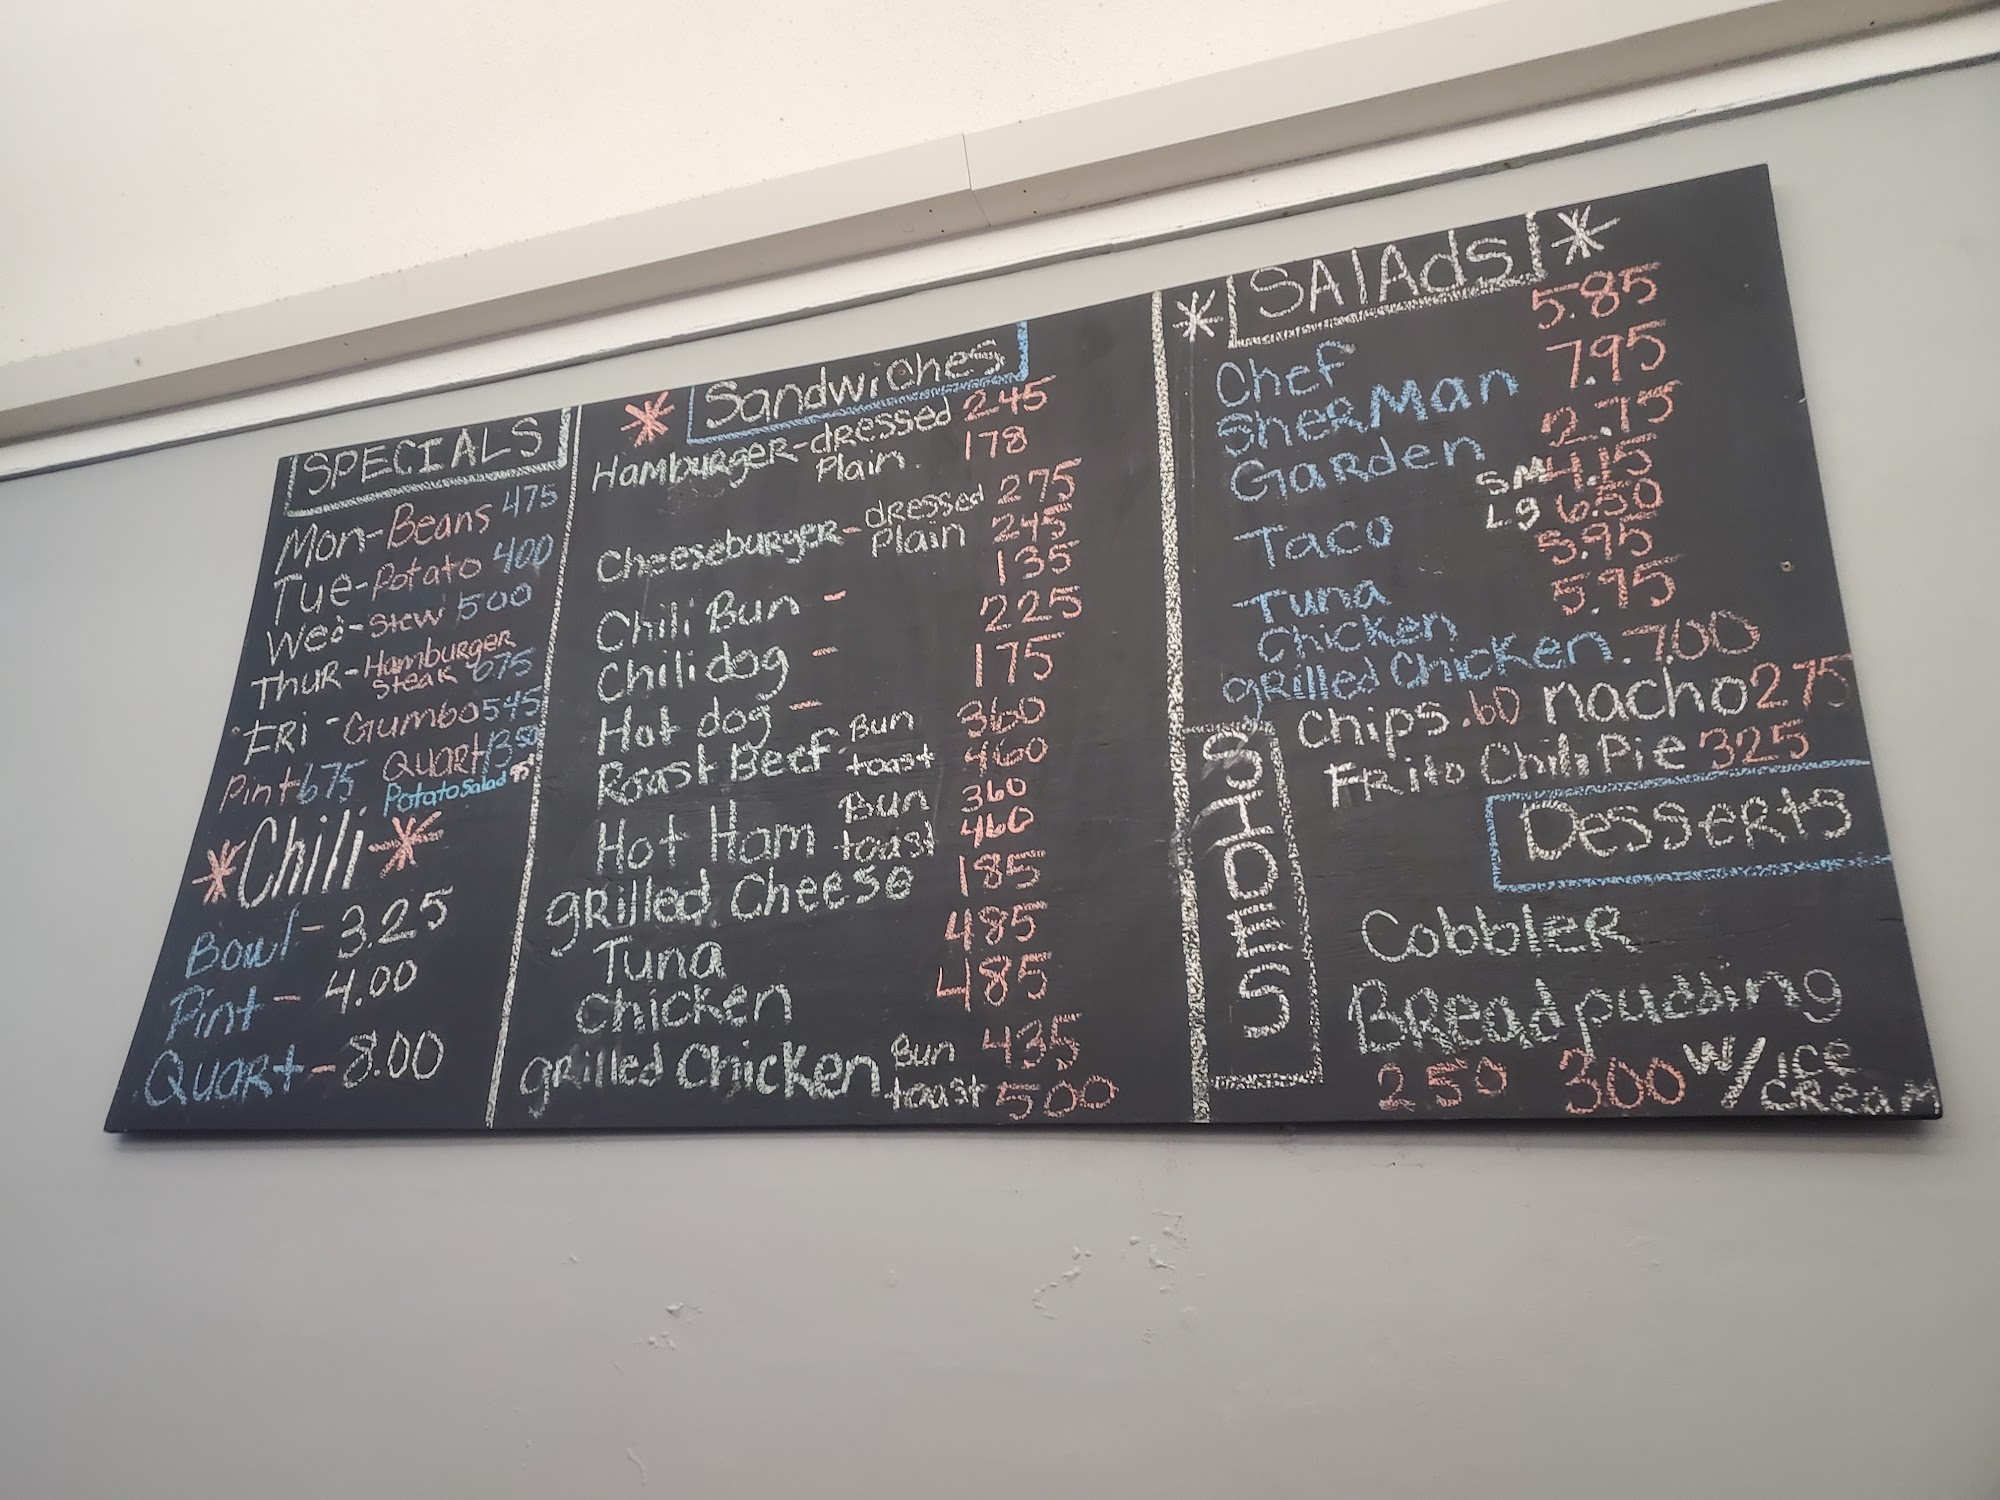 SPECIALS
Mon-Beans 475
Tue-Potato 400
Wed-Stew 500
THUR-Hamburger Steak 675
FRI-Gumbo 545
Pint 675 Quart 13 50
Potato Salad
*Chili*
Bowl - 3.25
Pint - 4.00
Quart - 8.00
* Sandwiches
Hamburger-dressed 245
Plain 178
Cheeseburger-dressed 275
Plain 245
Chili Bun - 135
Chili dog - 225
Hot dog - 175
Roast Beef Bun 360
toast 460
Hot Ham Bun 360
toast 460
grilled Cheese 185
Tuna 485
Chicken 485
grilled Chicken Bun 435
toast 500
* SAlAds *
Chef 5.85
SherMan 7.95
Garden 2.75
Taco SM 4.15
Lg 6.50
Tuna 5.95
Chicken 5.95
grilled Chicken 7.00
SIDES
Chips .60 nacho 275
Frito Chili Pie 325
Desserts
Cobbler
Bread pudding
250 300 w/ice cream